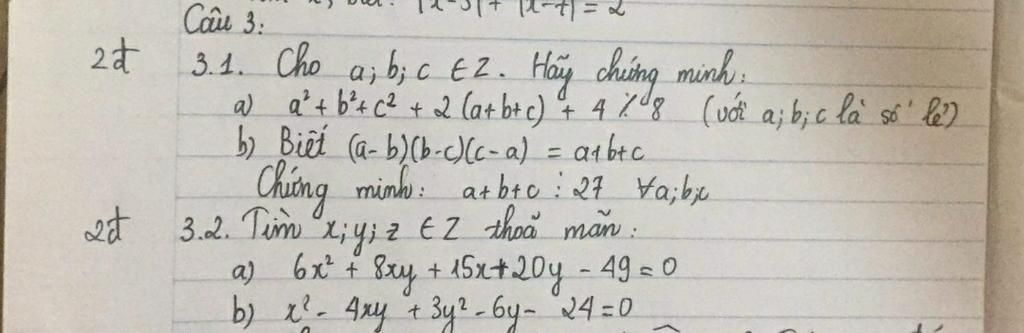 |x-3| + |x-7| = 2
Câu 3:
2đ 3.1. Cho a; b; c ∈ Z. Hãy chứng minh:
a) a² + b² + c² + 2(a+b+c) + 4 ⋮̸ 8 (với a; b; c là số lẻ)
b) Biết (a-b)(b-c)(c-a) = a+b+c
Chứng minh: a+b+c ⋮ 27 ∀a;b;c
2đ 3.2. Tìm x; y; z ∈ Z thoã mãn:
a) 6x² + 8xy + 15x + 20y - 49 = 0
b) x² - 4xy + 3y² - 6y - 24 = 0